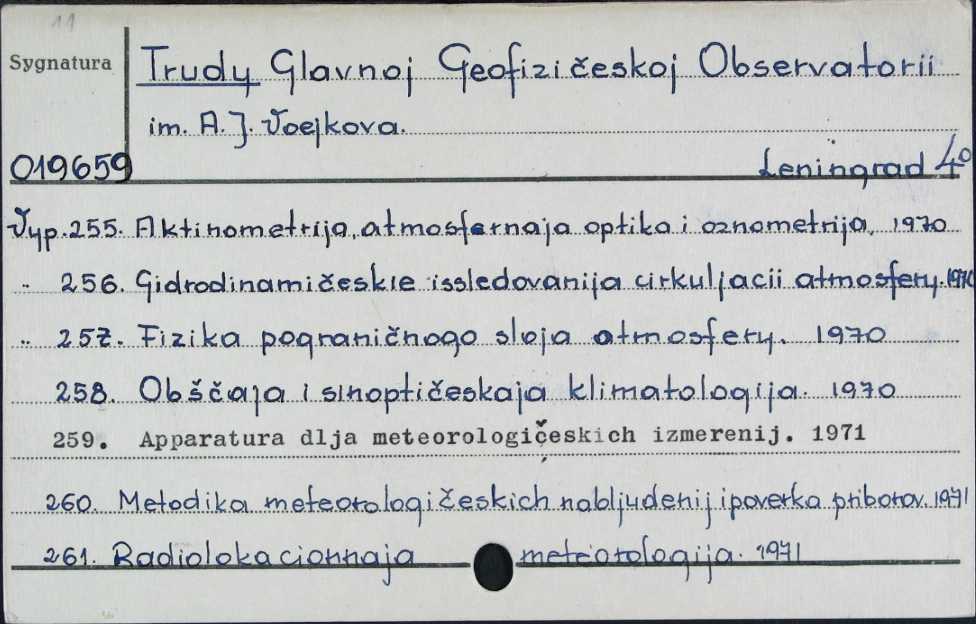 11
Sygnatura
Trudy Glavnoj Geofizičeskoj Observatorii
im. A. J. Voejkova.
019659
Leningrad 4º
Vyp. 255. Aktinometrija, atmosfernaja optika i oznometrija, 1970
" 256. Gidrodinamičeskie issledovanija cirkuljacii atmosfery. 1970
" 257. Fizika pograničnogo sloja atmosfery. 1970
258. Obščaja i sinoptičeskaja klimatologija. 1970
259. Apparatura dlja meteorologičeskich izmerenij. 1971
260. Metodika meteorologičeskich nabljudenij i poverka priborov. 1971
261. Radiolokacionnaja meteorologija. 1971